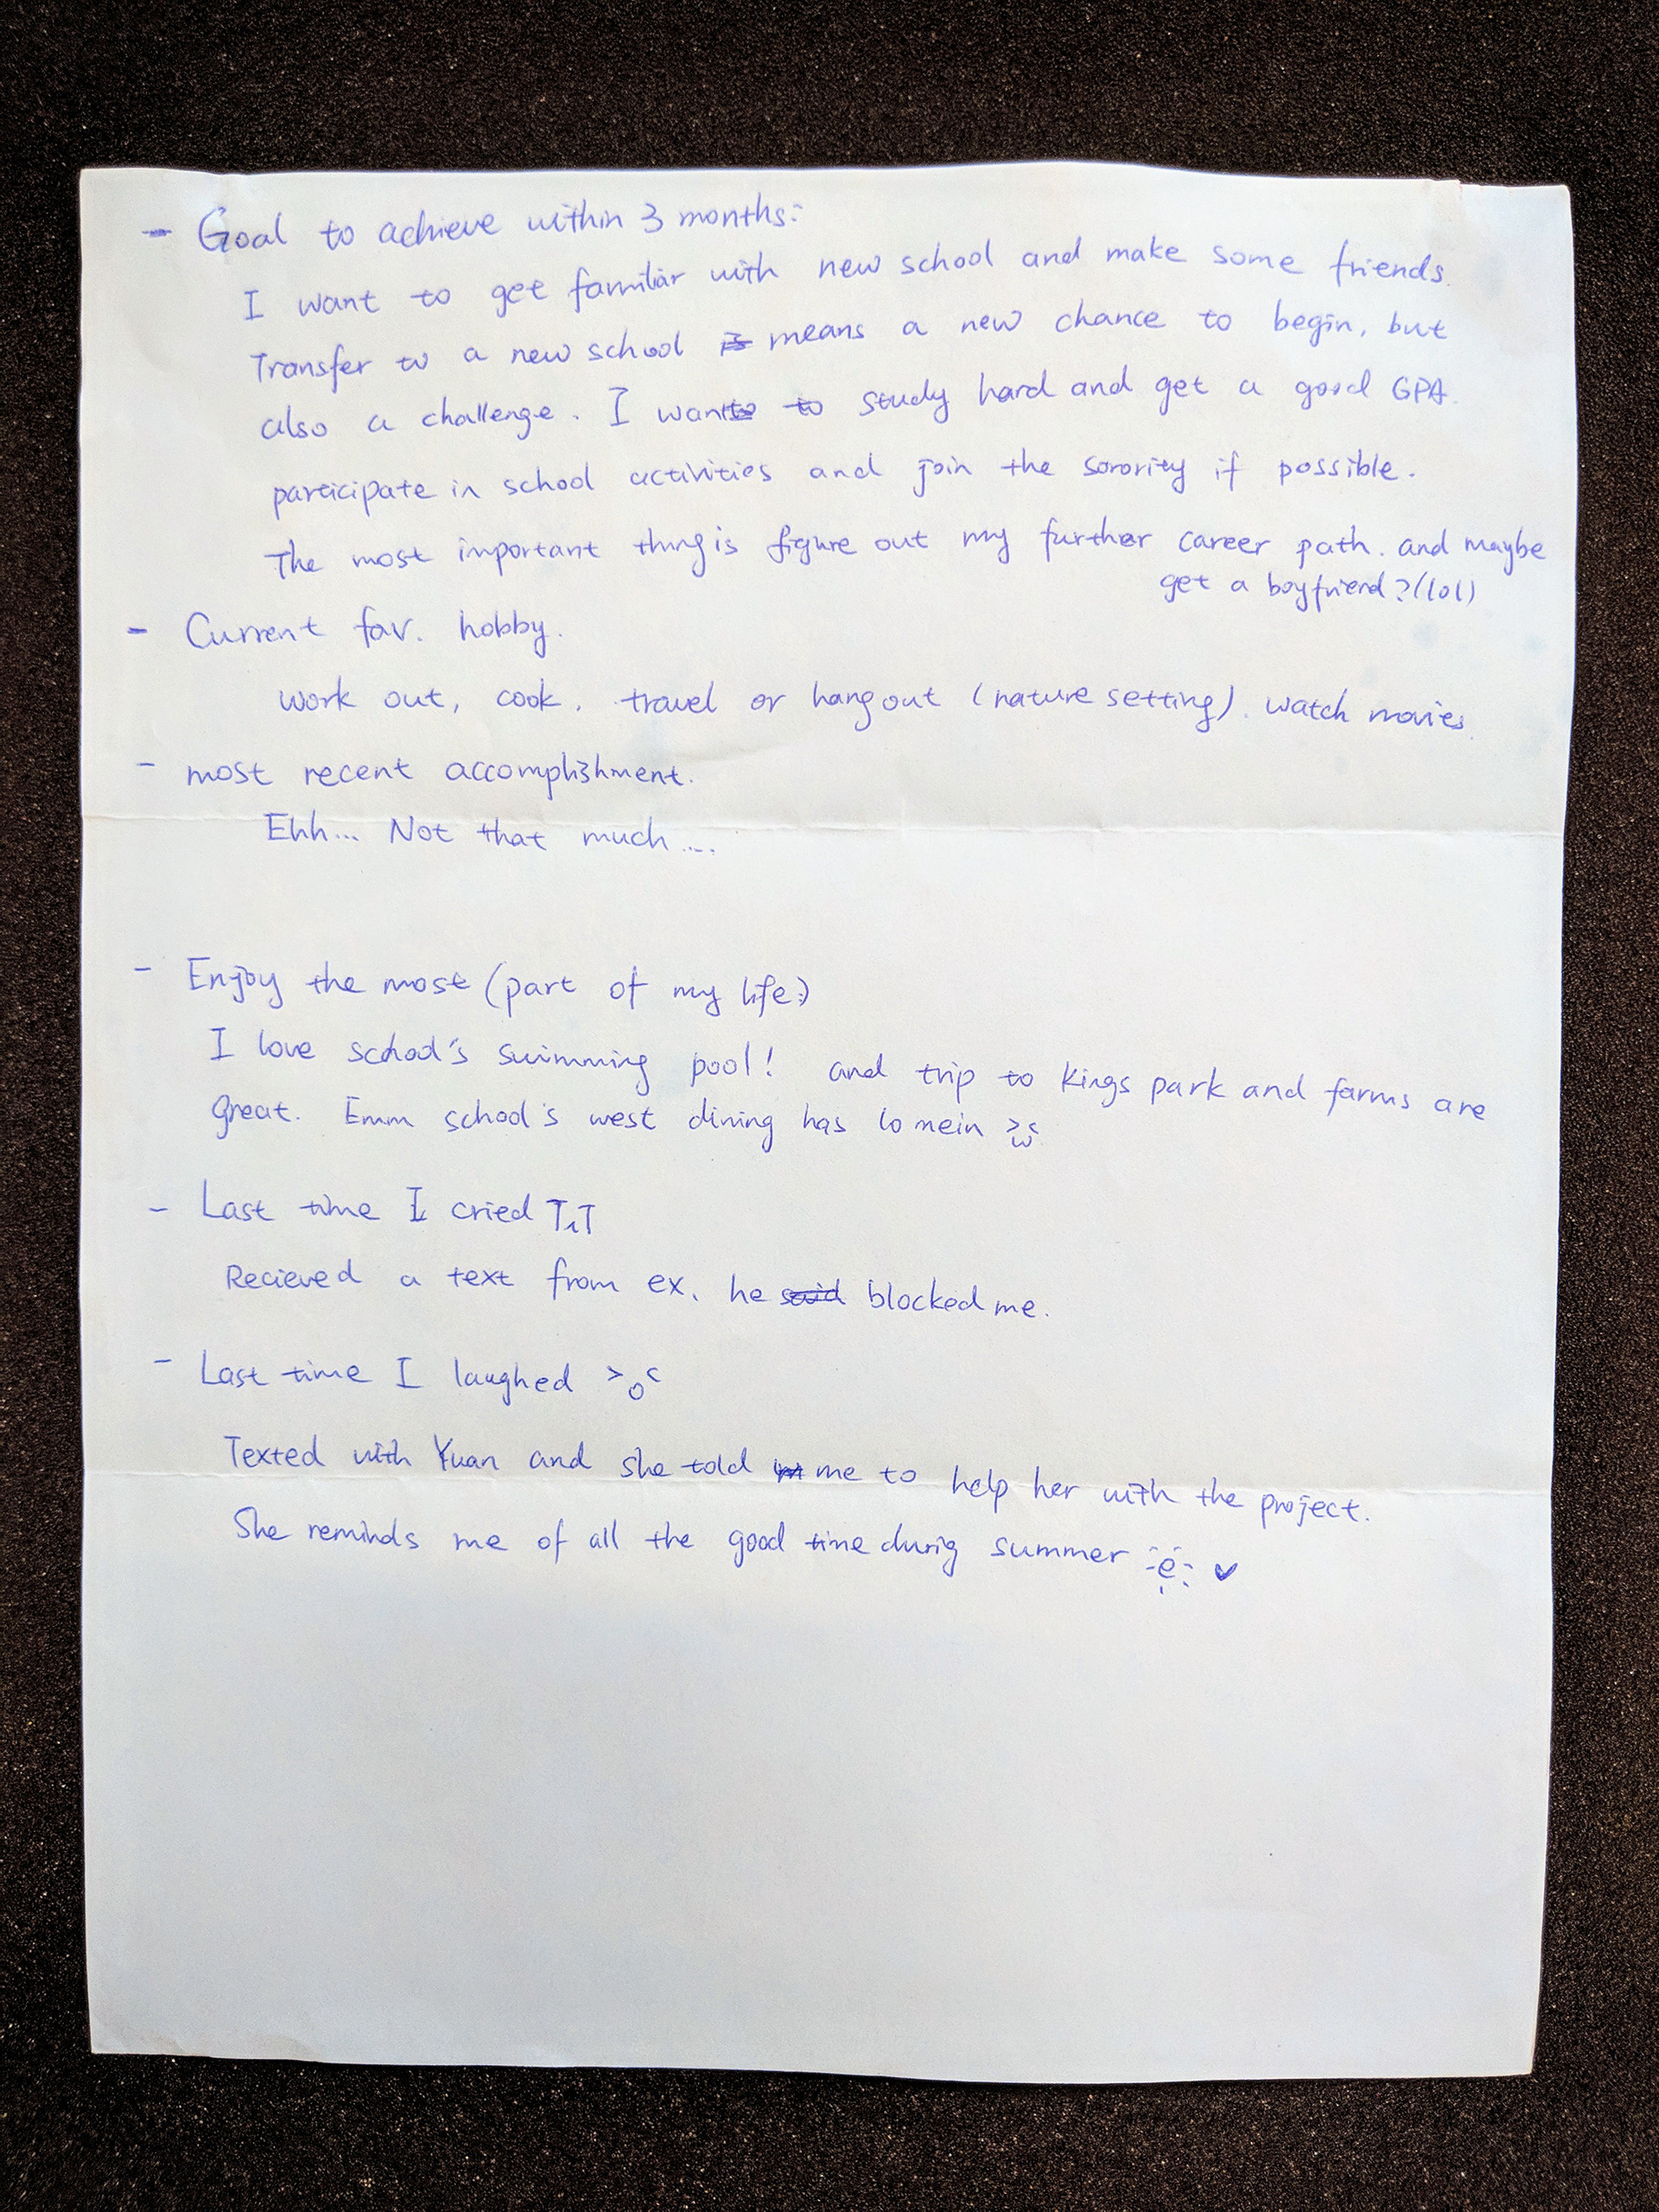 - Goal to achieve within 3 months:
I want to get familiar with new school and make some friends.
Transfer to a new school is means a new chance to begin, but
also a challenge. I want to study hard and get a good GPA.
participate in school activities and join the sorority if possible.
The most important thing is figure out my further career path. and maybe
get a boyfriend?(lol)
- Current fav. hobby.
work out, cook, travel or hang out (nature setting). watch movies.
- most recent accomplishment.
Ehh... Not that much ....
- Enjoy the most (part of my life:)
I love school's swimming pool! and trip to Kings park and farms are
great. Emm school's west dining has lo mein >w<
- Last time I cried T^T
Recieved a text from ex, he said blocked me.
- Last time I laughed >o<
Texted with Yuan and she told me to help her with the project.
She reminds me of all the good time durig summer ♥